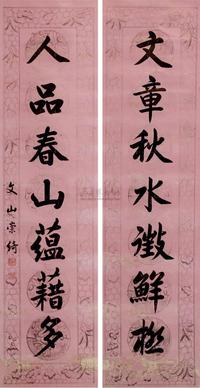 文章秋水澂鮮極
人品春山蘊藉多
文山崇綺